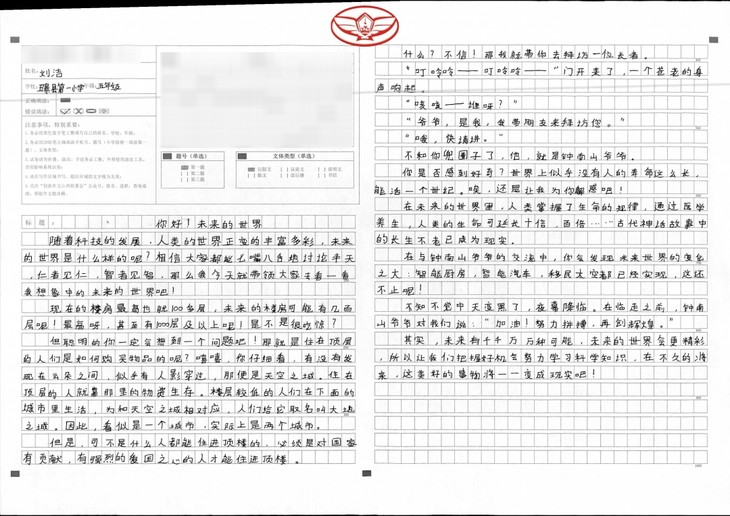 姓名:刘浩
学校: 县第一小学 年级:五年级
正确填涂:
错误填涂:
注意事项,特别重要:
题号(单选)
第一题
第二题
第三题
文体类型(单选)
记叙文
议论文
说明文
散文
读后感
书信
标题: 你好!未来的世界
随着科技的发展,人类的世界正变的丰富多彩,未来
的世界是什么样的呢?相信大家都能七嘴八舌地讨论半天
,仁者见仁,智者见智,那么我今天就带领大家去看一看
我想象中的未来的世界吧!
现在的楼房最高也就100多层,未来的楼房可能有几百
层呢!最高呀,甚至有1000层及以上呢!是不是很吃惊?
但聪明的你一定会想到一个问题吧!那就是住在顶层
的人们是如何购买物品的呢?嘻嘻,你仔细看,有没有发
现在云朵之间,似乎有人影穿过,那便是天空之城,住在
顶层的人就靠那里的物资生存。楼层较低的人们在下面的
城市里生活,为和天空之城相对应,人们给它取名叫大地
之城。因此,看似是一个城市,实际上是两个城市。
但是,可不是什么人都能住进顶楼的,必须是对国家
有贡献,有强烈的爱国之心的人才能住进顶楼。
什么?不信!那我就带你去拜访一位长者。
“叮呤呤——叮呤呤——”门开来了,一个苍老的身
声响起。
“咳咳——谁呀?”
“爷爷,是我,我带朋友来拜访您。”
“哦,快请进。”
不和你兜圈子了,他,就是钟南山爷爷。
你是否感到好奇?世界上似乎没有人的寿命这么长,
能活一个世纪。唉,还是让我为你解惑吧!
在未来的世界里,人类掌握了生命的规律,通过医学
养生,人类的生命可延长十倍,百倍……古代神话故事中
的长生不老已成为现实。
在与钟南山爷爷的交流中,你会发现未来世界的变化
之大:智能厨房,智能汽车,移民太空都已经实现,这还
不止呢!
不知不觉中天变黑了,夜幕降临。在临走之前,钟南
山爷爷对我们说:“加油!努力拼搏,再创辉煌。”
其实,未来有千千万万种可能,未来的世界会更精彩,
所以让我们把握好机会努力学习科学知识,在不久的将
来,这美好的事物将一一变成现实吧!